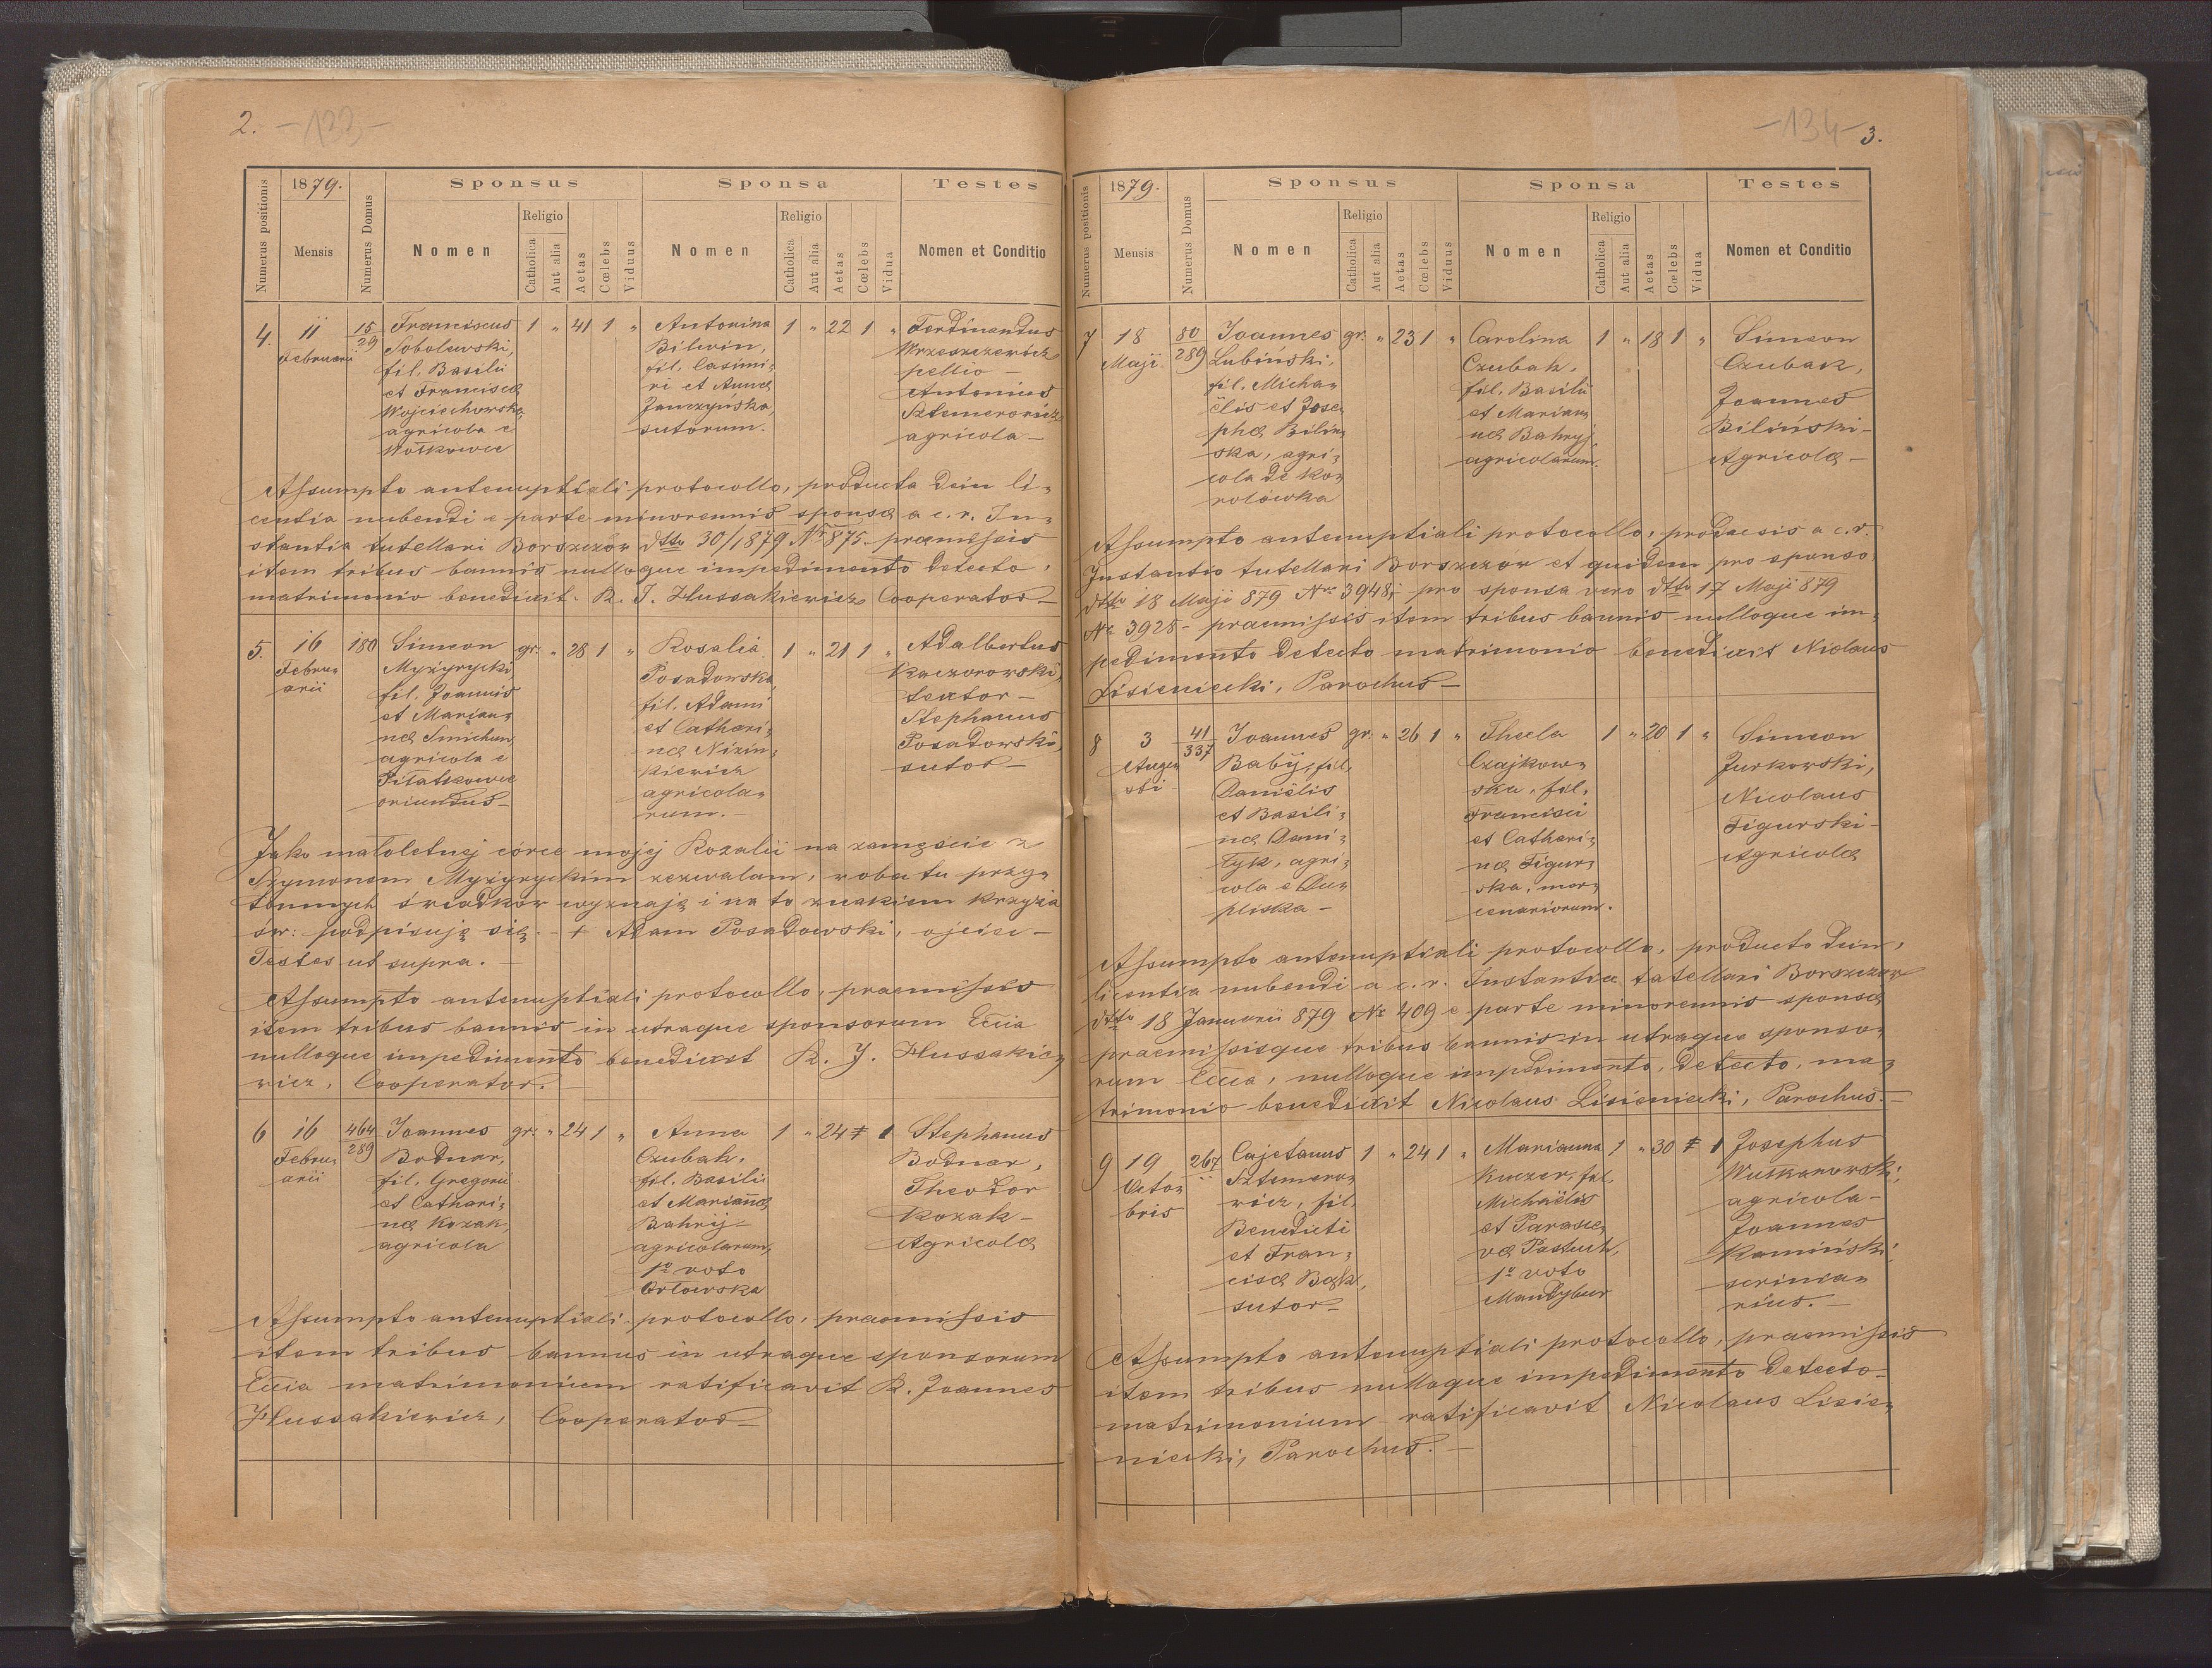 2. -133-
1879.
Sponsus
Sponsa
Testes
Numerus positionis
Mensis
Numerus Domus
Nomen
Religio
Catholica
Aut alia
Aetas
Cœlebs
Viduus
Nomen
Religio
Catholica
Aut alia
Aetas
Cœlebs
Vidua
Nomen et Conditio
4.
11
Februarii
15
29
Franciscus
Sobolewski,
fil. Basilii
et Francisca
Wojciechowska,
agricola e
Wołkowce
1 „ 41 1 „
Antonina
Bilwin,
fil. Casimi-
ri et Anna
Janczyńska,
sutorum.
1 „ 22 1 „
Ferdinandus
Wrzeszczewicz
pellio -
Antonius
Sztemerowicz
agricola -
Assumpto antenuptiali protocollo, producta dein li-
centia nubendi e parte minorennis sponsa a c. r. In-
stantia tutellari Borszczów dtto 30/1879 Nr 875. praemissis
item tribus bannis nulloque impedimento detecto,
matrimonio benedixit. R. J. Hussakiewicz Cooperator -
5.
16
Febru-
arii
180
Simeon
Myżyrycki
fil. Joannis
et Marian-
na Smichun,
agricola e
Piłatkowce
oriundus -
gr: „ 28 1 „
Rosalia
Posadowska,
fil. Adami
et Cathari-
na Nizin-
kiewicz
agricola-
rum. -
1 „ 21 1 „
Adalbertus
Kaczorowski,
textor -
Stephanus
Posadowski,
sutor -
Jako małoletnej córce mojej Rozalii na zamęście z
Szymonem Myżyryckim zezwalam, wobec tu przy-
tomnych świadków wyznaję i na to znakiem krzyża
św: podpisuję się. - + Adam Posadowski, ojciec -
Testes ut supra. -
Assumpto antenuptiali protocollo, praemissis
item tribus bannis in utraque sponsorum Eccia
nulloque impedimento benedixit R. J. Hussakie-
wicz, Cooperator.
6
16
Febru-
arii
464
289
Joannes
Bodnar,
fil. Gregorii
et Cathari-
na Kozak,
agricola
gr: „ 24 1 „
Anna
Czubak,
fil. Basilii
et Marianna
Bahrij -
agricolarum,
1o voto
Orłowska
1 „ 24 1 1
Stephanus
Bodnar,
Theodor
Kozak -
Agricola
Assumpto antenuptiali protocollo, praemissis
item tribus bannus in utraque sponsorum
Eccia matrimonium ratificavit R. Joannes
Hussakiewicz, Cooperator -
-134- 3.
1879.
Sponsus
Sponsa
Testes
Numerus positionis
Mensis
Numerus Domus
Nomen
Religio
Catholica
Aut alia
Aetas
Cœlebs
Viduus
Nomen
Religio
Catholica
Aut alia
Aetas
Cœlebs
Vidua
Nomen et Conditio
7
18
Maji
80
289
Joannes
Lubiński,
fil. Micha-
ëlis et Jose-
pha Bilin-
ska, agri-
cola de Ko-
rolówka
gr. „ 23 1 „
Carolina
Czubak,
fil. Basilii
et Marian-
na Bahryj,
agricolarum.
1 „ 18 1 „
Simeon
Czubak,
Joannes
Biliński -
Agricola -
Assumpto antenuptiali protocollo, a c. r.
Instantio tutellari Borszczów et quidem pro sponso
dtto 18 Maji 879 Nr 3948; pro sponsa vero dtto 17 Maji 879
Nr 3928 - praemissis item tribus bannis nulloque im-
pedimento detecto matrimonio benedixit Nicolaus
Lisieniecki, Parochus -
8
3
Augu-
sti
41
337
Joannes
Babij, fil.
Daniëlis
et Basili-
na Dani-
łyk, agri-
cola e Du-
pliska -
gr. „ 26 1 „
Thecla
Czajkow-
ska, fil.
Francisci
et Cathari-
na Figur-
ska, mer-
cenariorum.
1 „ 20 1 „
Simeon
Jurkowski,
Nicolaus
Figurski -
Agricola
Assumpto antenuptiali protocollo, producto dein,
licentia nubendi a c. r. Instantia tutellari Borszczów
dtto 18 Januarii 879 Nr 409 e parte minorennis sponsa,
praemissisque tribus bannis in utraque sponso-
rum Eccia, nulloque impedimento, detecto, ma-
trimonio benedixit Nicolaus Lisieniecki, Parochus. -
9
19
Octo-
bris
267
Cajetanus
Sztemero-
wicz, fil.
Benedicti
et Fran-
cisca Bąk,
sutor -
1 „ 24 1 „
Marianna
Kuczer, fil.
Michaëlis
et Parasce-
va Pastuch,
1o voto
Mandybur
1 „ 30 1 1
Josephus
Wuskanowski,
agricola -
Joannes
Kamiński,
scrinia-
rius. -
Assumpto antenuptiali protocollo, praemissis
item tribus nulloque impedimento detecto
matrimonium ratificavit Nicolaus Lisie-
niecki, Parochus. -